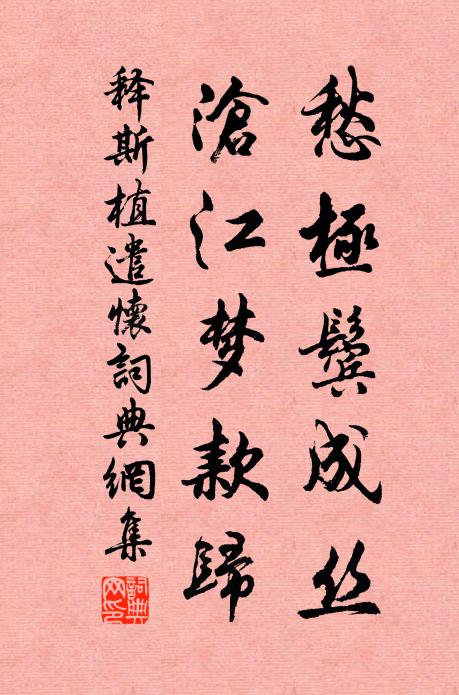 愁極鬓成丝
滄江梦款歸
释斯植遣懷詞典網集
詞典網印